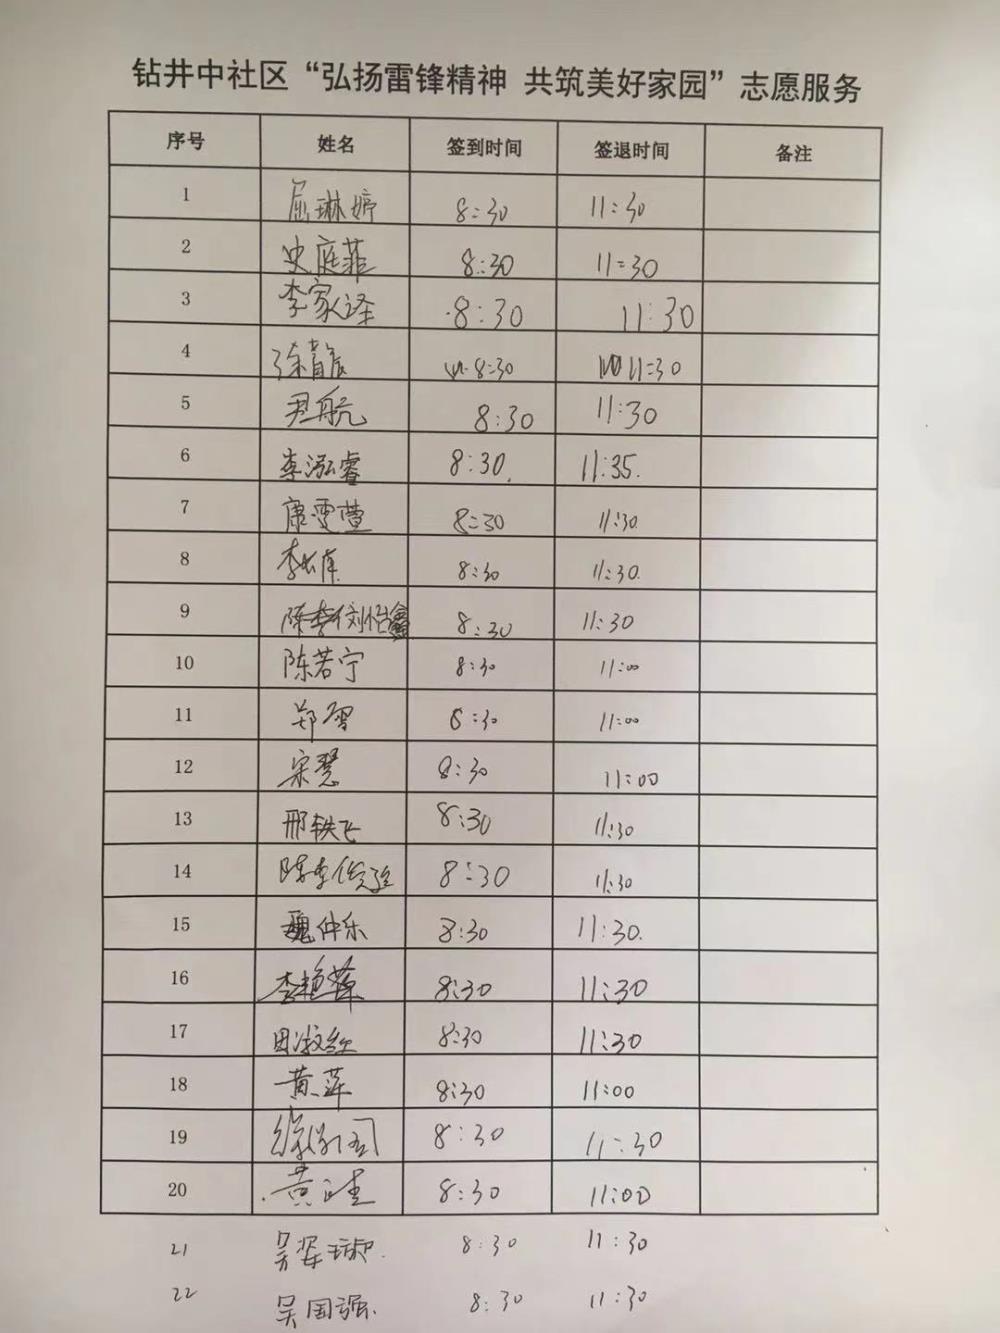 钻井中社区“弘扬雷锋精神 共筑美好家园”志愿服务
序号 姓名 签到时间 签退时间 备注
1 屈琳婷 8:30 11:30
2 史庭菲 8:30 11:30
3 李家泽 8:30 11:30
4 8:30 11:30
5 尹航 8:30 11:30
6 李泓睿 8:30 11:35
7 康雯萱 8:30 11:30
8 8:30 11:30
9 刘怡鑫 8:30 11:30
10 陈若宁 8:30 11:00
11 8:30 11:00
12 宋慧 8:30 11:00
13 邢轶飞 8:30 11:30
14 8:30 11:30
15 魏仲乐 8:30 11:30
16 李艳萍 8:30 11:30
17 田淑红 8:30 11:30
18 黄萍 8:30 11:00
19 8:30 11:30
20 8:30 11:00
21 8:30 11:30
22 吴国强 8:30 11:30